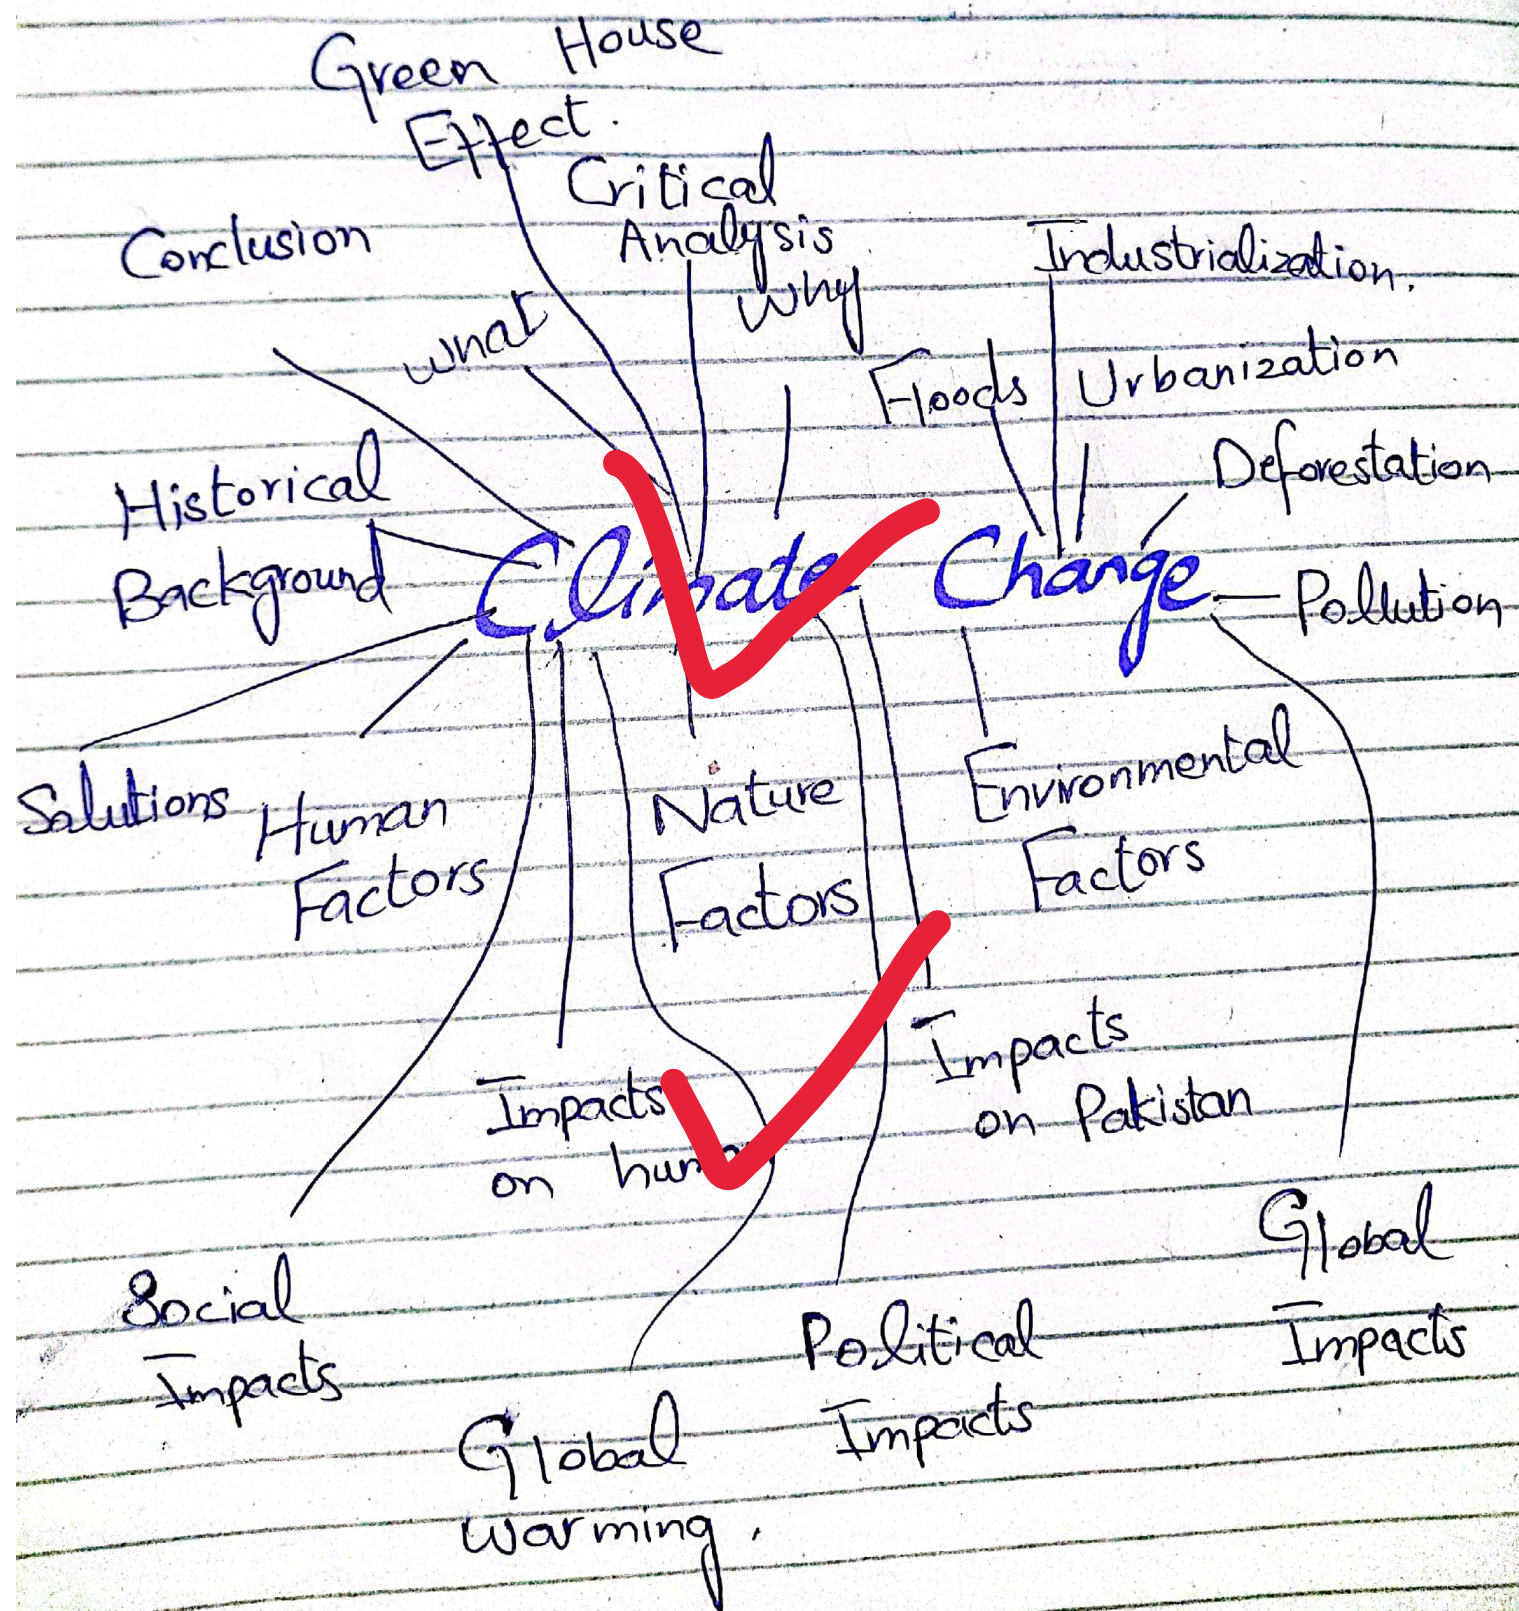 Green House
Effect.
Critical
Analysis
Conclusion
what
why
Industrialization.
Floods
Urbanization
Deforestation
Historical
Background
Climate Change
Pollution
Solutions
Human
Factors
Nature
Factors
Environmental
Factors
Impacts
on
Impacts
on Pakistan
Social
Impacts
Global
warming.
Political
Impacts
Global
Impacts